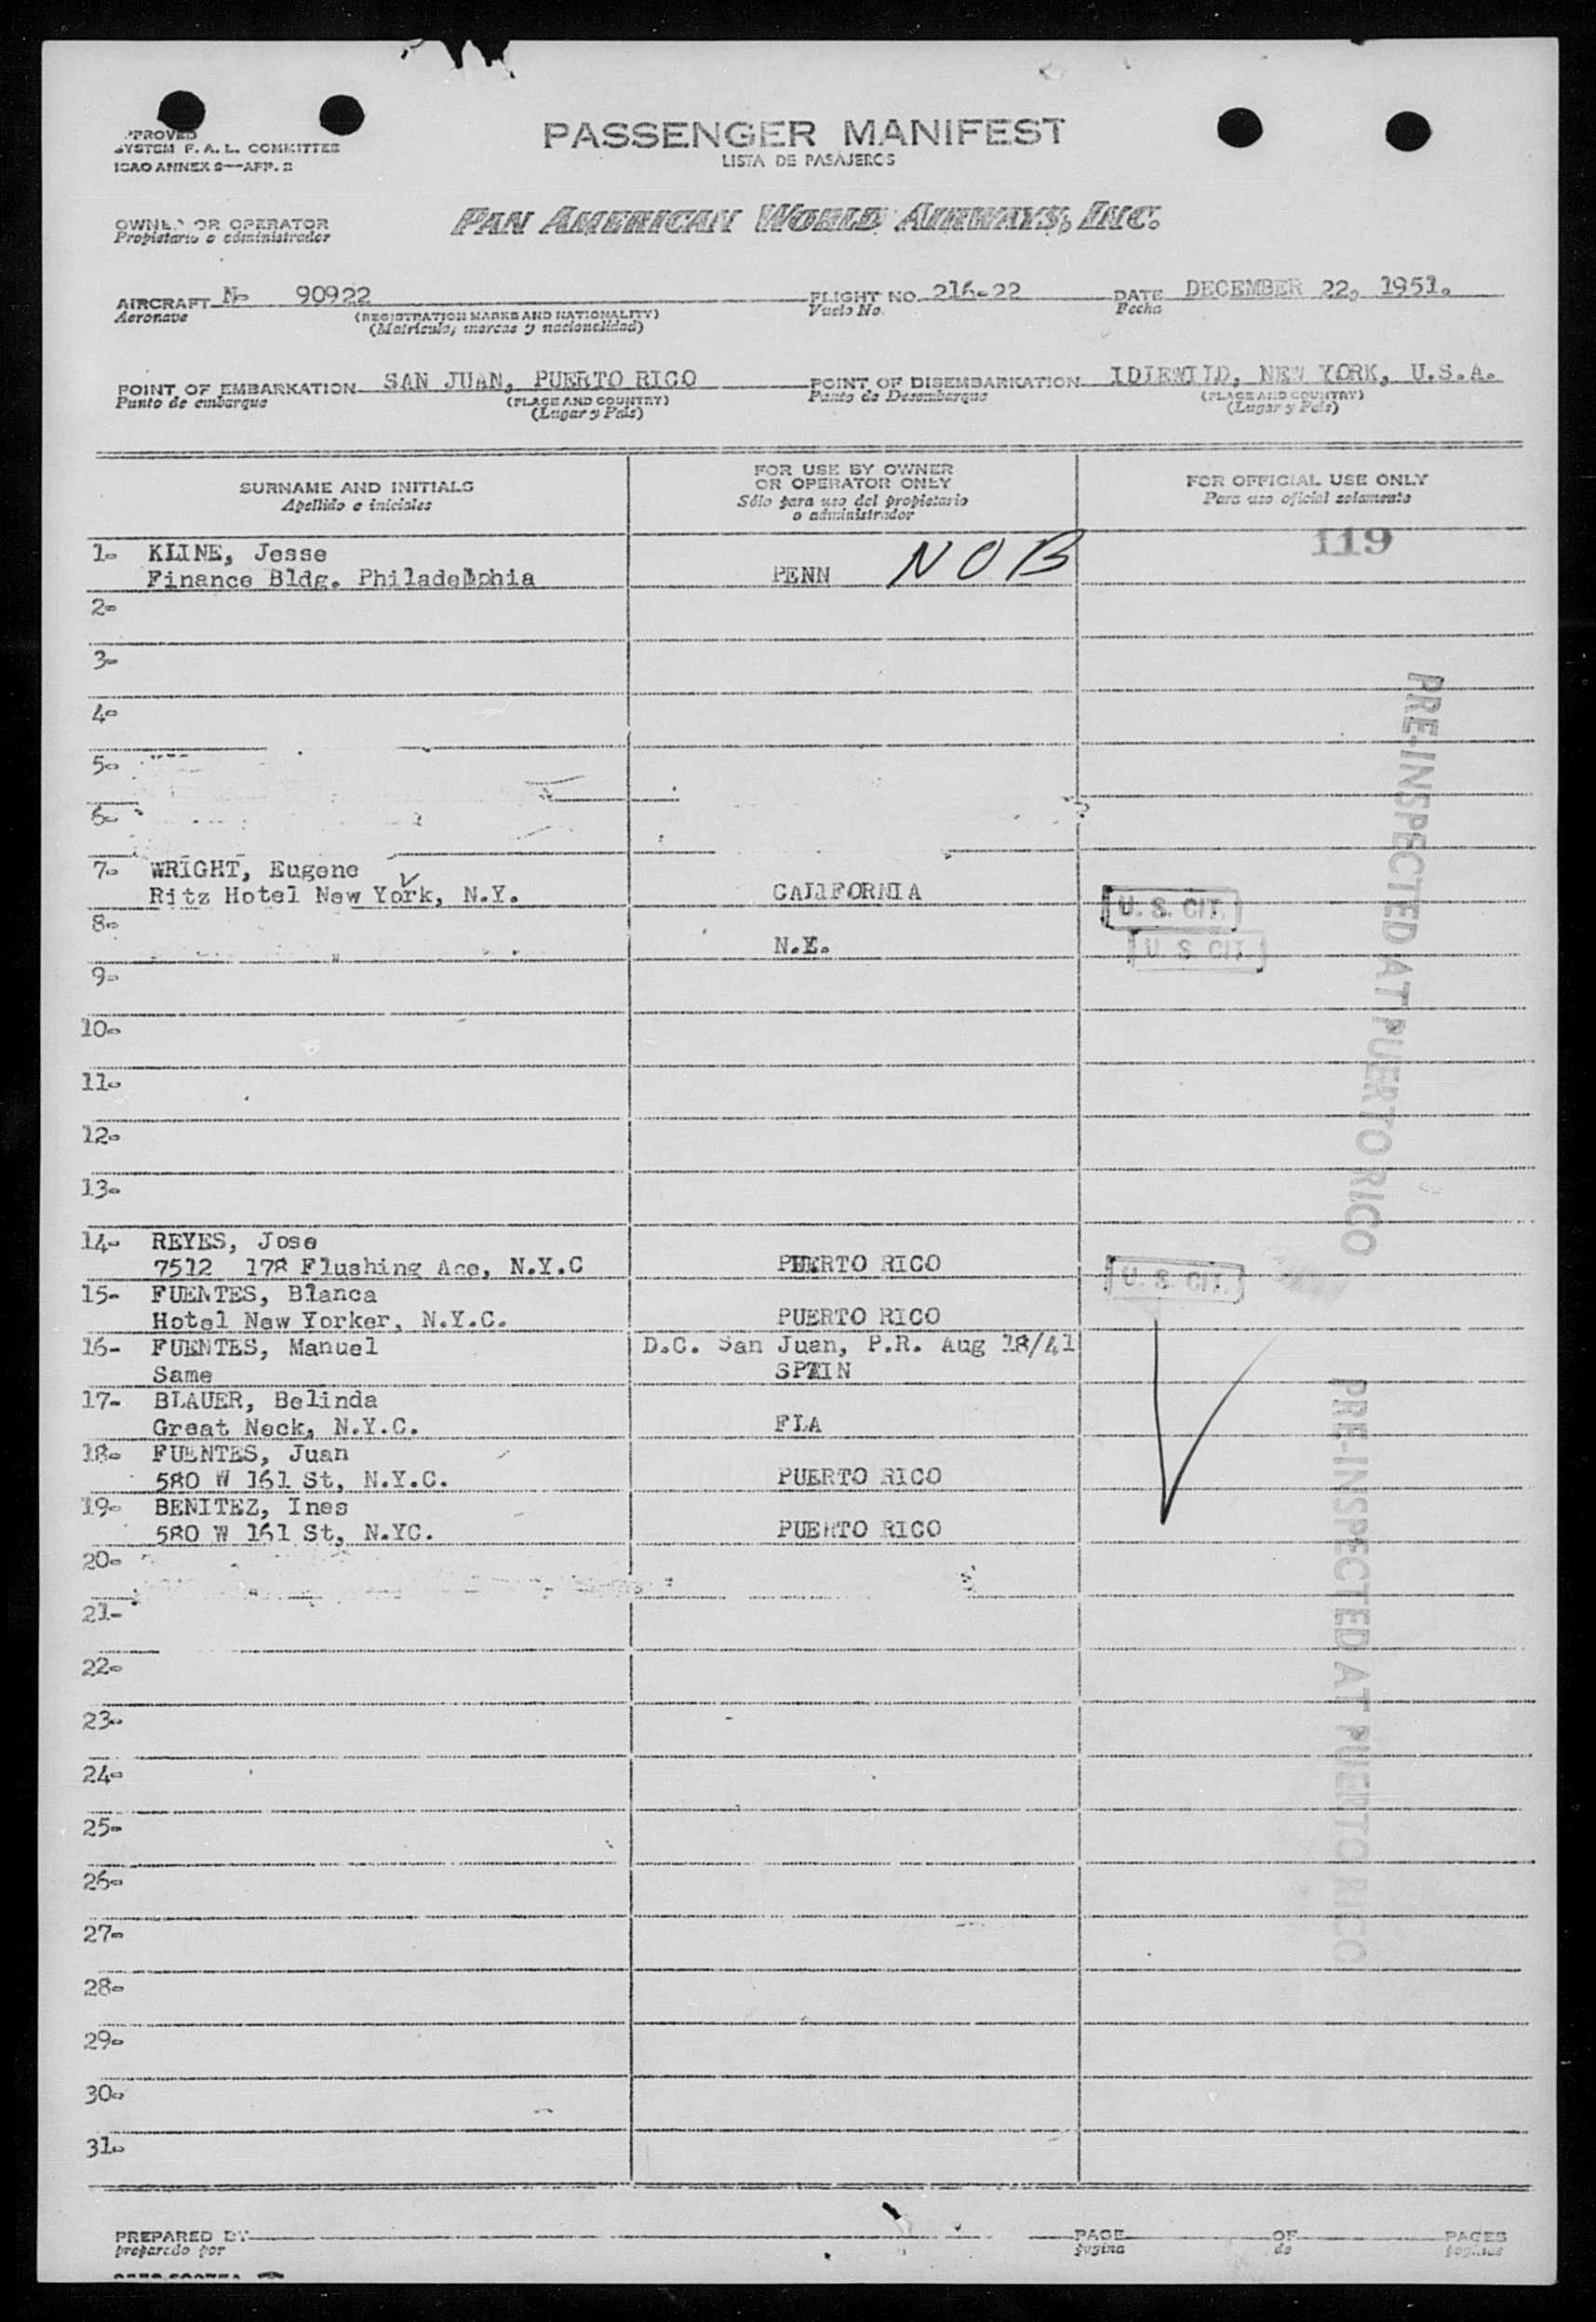 PASSENGER MANIFEST
LISTA DE PASAJEROS
SYSTEM F. A. L. COMMITTEE
ICAO ANNEX 9—APP. 2
OR OPERATOR
Propietario o administrador
PAN AMERICAN WORLD AIRWAYS, INC.
AIRCRAFT N- 90922 FLIGHT NO. 216-22 DATE DECEMBER 22, 1951.
Aeronave (REGISTRATION MARKS AND NATIONALITY) Vuelo No. Fecha
(Matricula, marcas y nacionalidad)
POINT OF EMBARKATION SAN JUAN, PUERTO RICO POINT OF DISEMBARKATION IDLEWILD, NEW YORK, U.S.A.
Punto de embarque (PLACE AND COUNTRY) Punto de Desembarque (PLACE AND COUNTRY)
(Lugar y País) (Lugar y País)
SURNAME AND INITIALS
Apellido e iniciales
FOR USE BY OWNER
OR OPERATOR ONLY
Sólo para uso del propietario
o administrador
FOR OFFICIAL USE ONLY
Para uso oficial solamente
119
1- KLINE, Jesse
Finance Bldg. Philadelphia PENN NOB
2-
3-
4-
5-
6-
7- WRIGHT, Eugene
Ritz Hotel New York, N.Y. CALIFORNIA U. S. CIT.
8-
N.Y. U. S. CIT.
9-
10-
11-
12-
13-
PRE-INSPECTED AT PUERTO RICO
14- REYES, Jose
7512 178 Flushing Ace, N.Y.C PUERTO RICO U. S. CIT.
15- FUENTES, Blanca
Hotel New Yorker, N.Y.C. PUERTO RICO
16- FUENTES, Manuel D.C. San Juan, P.R. Aug 18/41
Same SPAIN
17- BLAUER, Belinda
Great Neck, N.Y.C. FLA
18- FUENTES, Juan
580 W 161 St, N.Y.C. PUERTO RICO
19- BENITEZ, Ines
580 W 161 St, N.YC. PUERTO RICO
20-
21-
22-
23-
24-
25-
26-
27-
28-
29-
30-
31-
PRE-INSPECTED AT PUERTO RICO
PREPARED BY PAGE OF PAGES
preparado por pagina de paginas